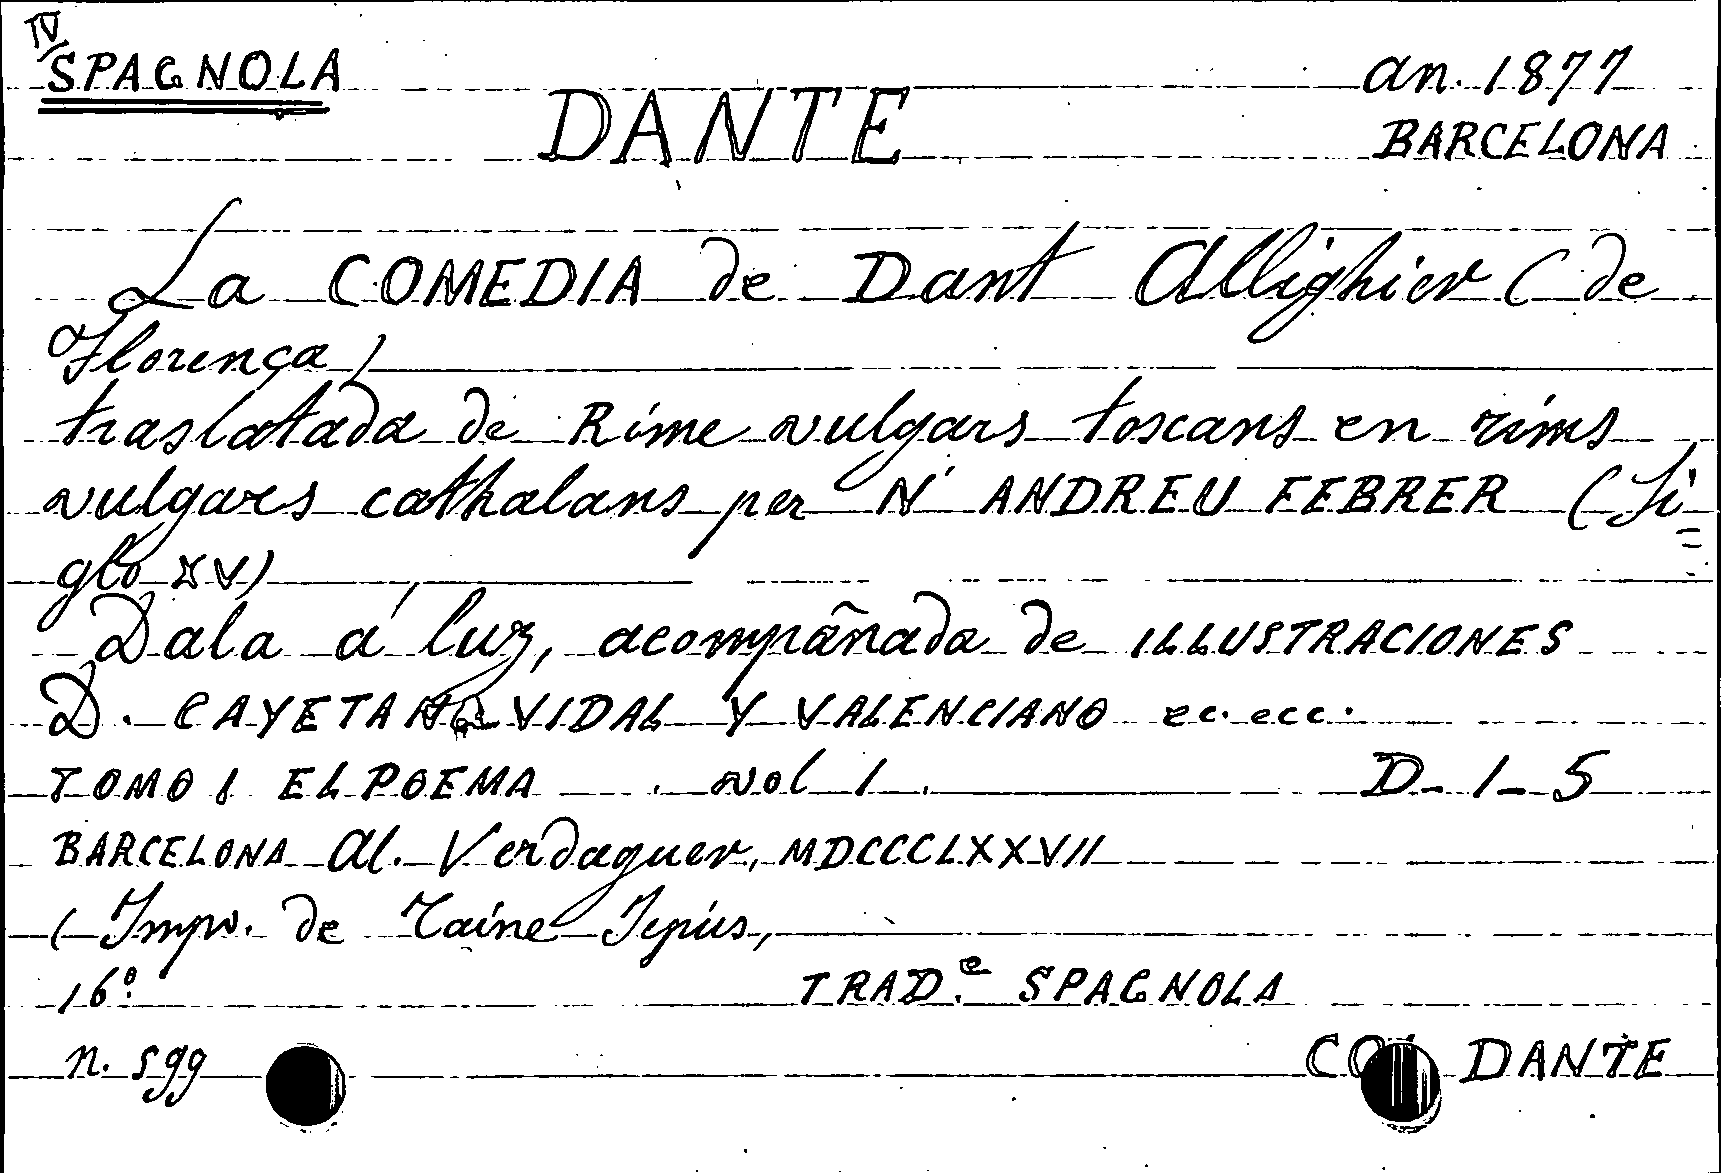 IV
SPAGNOLA
an. 1877
DANTE
BARCELONA
La COMEDIA de Dant Allighier (de
Florença)
traslatada de Rime vulgars toscans en rims
vulgars cathalans per N' ANDREU FEBRER (Si=
glo XV)
Dala á luz, acompañada de ILLUSTRACIONES
D. CAYETANO VIDAL Y VALENCIANO ec. ecc.
TOMO I EL POEMA . vol 1. D-1-5
BARCELONA Al. Verdaguer, MDCCCLXXVII
(Impr. de Taine Jepús,
16º.
TRAD.e SPAGNOLA
n. 599
DANTE